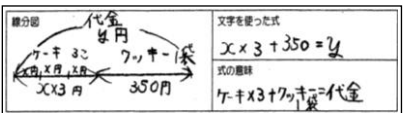 線分図
代金
y円
ケーキ 3こ
クッキー1袋
x円 x円 x円
x×3円
350円
文字を使った式
x×3+350=y
式の意味
ケーキ×3+クッキー1袋=代金